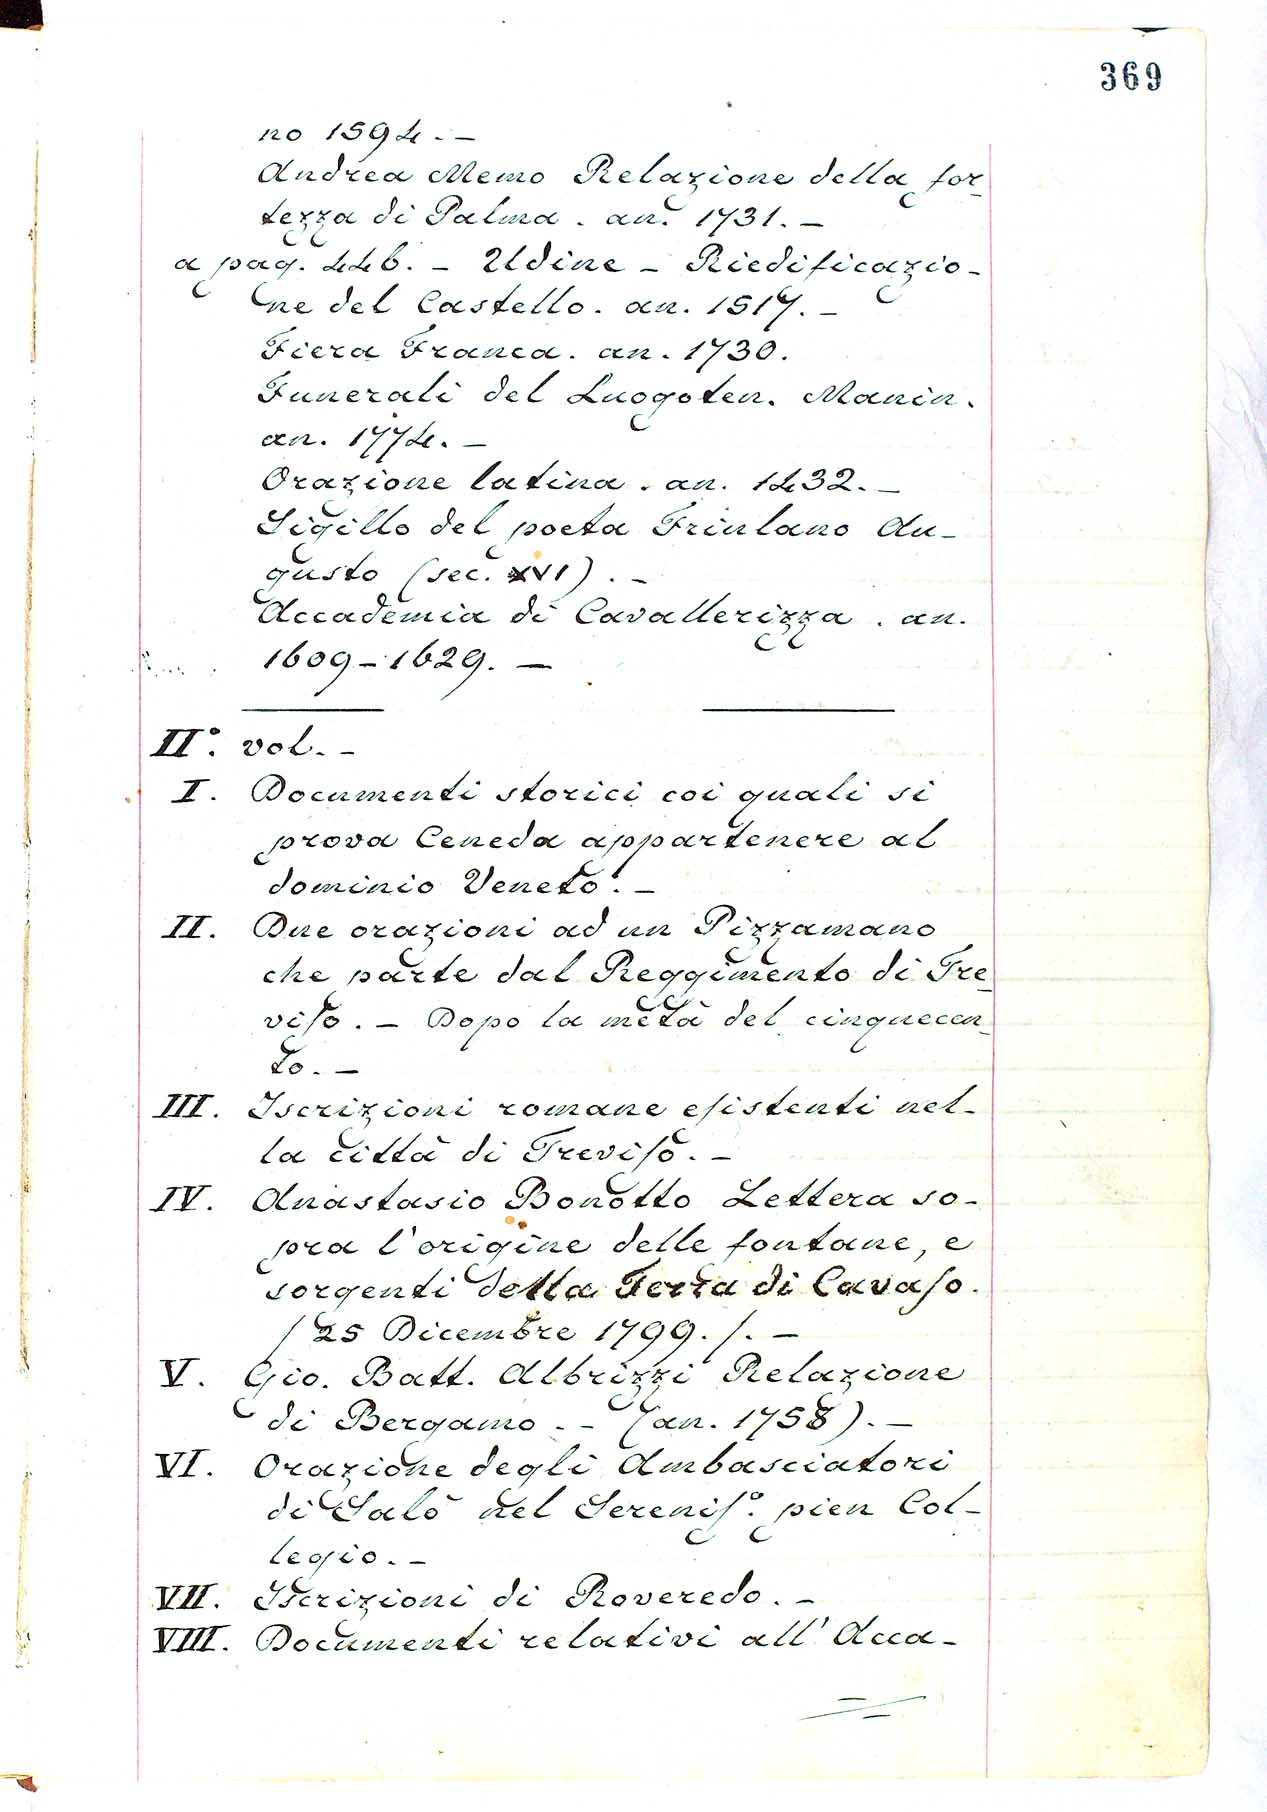 369
no 1594. –
Andrea Memo Relazione della for-
tezza di Palma. an. 1731. –
a pag. 446. – Udine – Riedificazio-
ne del Castello. an. 1517. –
Fiera Franca. an. 1730.
Funerali del Luogoten. Manin.
an. 1774. –
Orazione latina. an. 1432. –
Sigillo del poeta Friulano Au-
gusto (sec. XVI). –
Accademia di Cavallerizza. an.
1609–1629. –
II°. vol. –
I. Documenti storici coi quali si
prova Ceneda appartenere al
dominio Veneto. –
II. Due orazioni ad un Pizzamano
che parte dal Reggimento di Tre-
viſo. – Dopo la metà del cinquecen-
to. –
III. Iscrizioni romane eſistenti nel-
la città di Treviſo. –
IV. Anastasio Bonotto Lettera so-
pra l'origine delle fontane, e
sorgenti della Terra di Cavaſo.
/25 Dicembre 1799./. –
V. Gio. Batt. Albrizzi Relazione
di Bergamo. – (an. 1758). –
VI. Orazione degli Ambasciatori
di Salò nel Sereniſ°. pien Col-
legio. –
VII. Iscrizioni di Roveredo. –
VIII. Documenti relativi all'Acca-